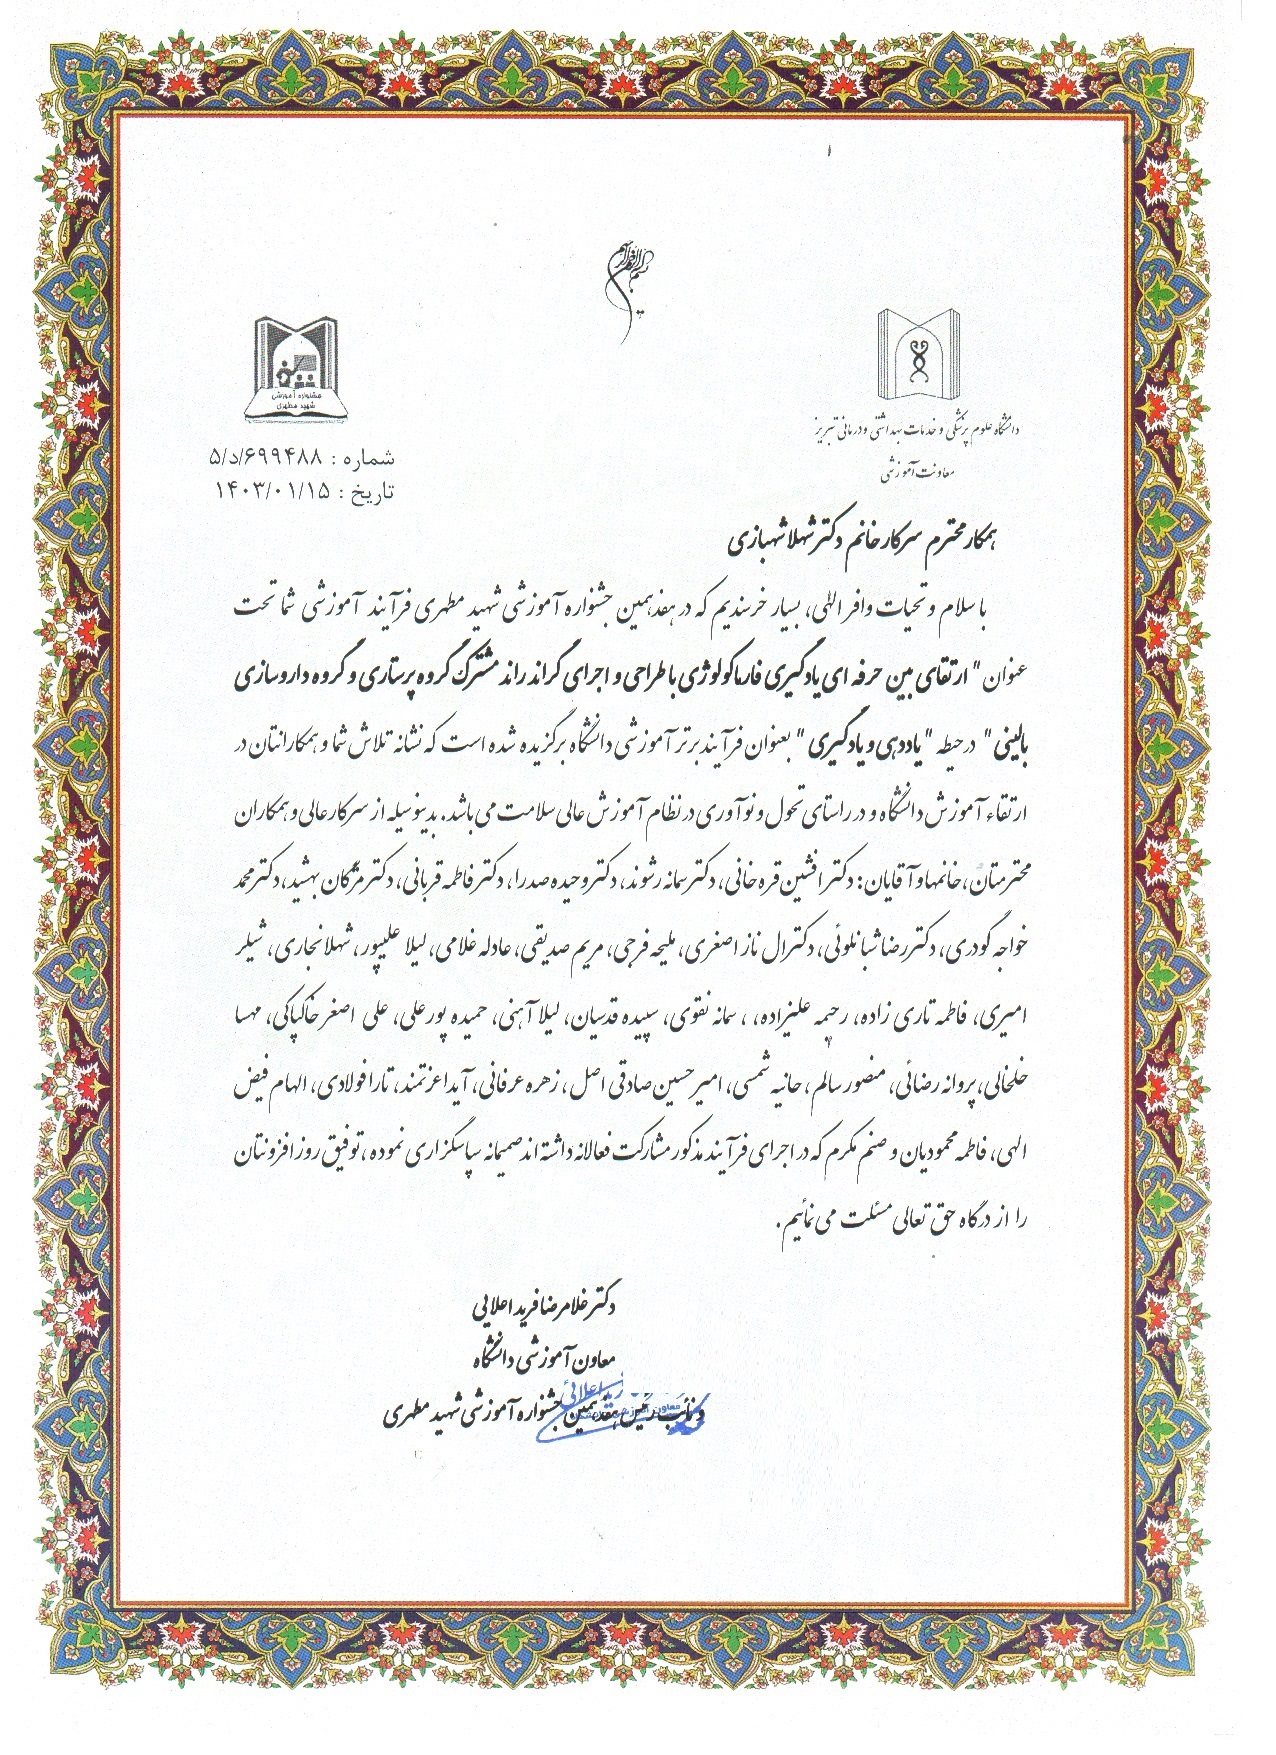 بسم الله الرحمن الرحیم
دانشگاه علوم پزشکی و خدمات بهداشتی و درمانی تبریز
معاونت آموزشی
جشنواره آموزشی
شهید مطهری
شماره : ۵/د/۶۹۹۴۸۸
تاریخ : ۱۴۰۳/۰۱/۱۵
همکار محترم سرکار خانم دکتر شهلا شهبازی
با سلام و تحیات وافر الهی، بسیار خرسندیم که در هفدهمین جشنواره آموزشی شهید مطهری فرآیند آموزشی شما تحت
عنوان " ارتقای بین حرفه ای یادگیری فارماکولوژی با طراحی و اجرای گراند راند مشترک گروه پرستاری و گروه داروسازی
بالینی" در حیطه "یاددهی و یادگیری " بعنوان فرآیند برتر آموزشی دانشگاه برگزیده شده است که نشانه تلاش شما و همکارانتان در
ارتقاء آموزش دانشگاه و در راستای تحول و نوآوری در نظام آموزش عالی سلامت می باشد. بدینوسیله از سرکار عالی و همکاران
محترمتان، خانمها و آقایان: دکتر افشین قره خانی، دکتر سمانه رشوند، دکتر وحیده صدرا، دکتر فاطمه قربانی، دکتر مژگان بهشید، دکتر محمد
خواجه گودری، دکتر رضا شبانلوئی، دکتر ال ناز اصغری، ملیحه فرجی، مریم صدیقی، عادله غلامی، لیلا علیپور، شهلا نجاری، شیلر
امیری، فاطمه تاری زاده، رحیمه علیزاده، ، سمانه نقوی، سپیده قدسیان، لیلا آهنی، حمیده پور علی، علی اصغر خاکپاکی، مهسا
خلخالی، پروانه رضائی، منصور سالم، حانیه شمسی، امیر حسین صادقی اصل، زهره عرفانی، آیدا عزتمند، تارا فولادی، الهام فیض
الهی، فاطمه محمودیان و صنم مکرم که در اجرای فرآیند مذکور مشارکت فعالانه داشته اند صمیمانه سپاسگزاری نموده، توفیق روز افزونتان
را از درگاه حق تعالی مسئلت می نمائیم.
دکتر غلامرضا فرید اعلایی
معاون آموزشی دانشگاه
و نائب رئیس هفدهمین جشنواره آموزشی شهید مطهری